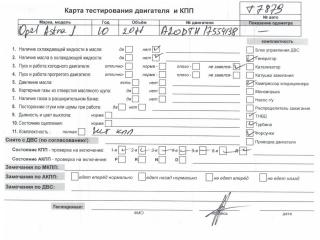 Карта тестирования двигателя и КПП
№ авто
Марка, модель Год Объём № двигателя Показания одометра
Opel Astra J 10 2.0TD A20DTH
комплектность
1. Наличие охлаждающей жидкости в масле да нет
2. Наличие масла в охлаждающей жидкости да нет
3. Пуск и работа холодного двигателя отлично норма плохо не завелся
4. Пуск и работа прогретого двигателя отлично норма плохо
5. Давление масла есть нет
6. Картерные газы из отверстия масляного щупа да нет
7. Наличие газов в расширительном бачке да нет
8. Посторонние стуки или шумы при работе да нет
9. Дымность и цвет выхлопа нормал
10. Состояние сцепления норма
11. Комплектность: полная нет кпп
Блок управления ДВС
Генератор
Катализатор
Катушки зажигания
Компрессор кондиционера
Моновпрыск
Насос г/у
Распределитель зажигания
ТНВД
Турбина
Форсунки
Проводка двигателя
Снято с ДВС (по согласованию):
Состояние КПП - проверка на включение: 1-я 2-я 3-я 4-я 5-я 6-я
Состояние АКПП - проверка на включение: P R N D
Замечания по МКПП:
Замечания по АКПП: не едет вперёд нормально не едет назад нормально не едет вперёд-назад
Замечания по ДВС:
Тестировал:
ФИО подпись дата